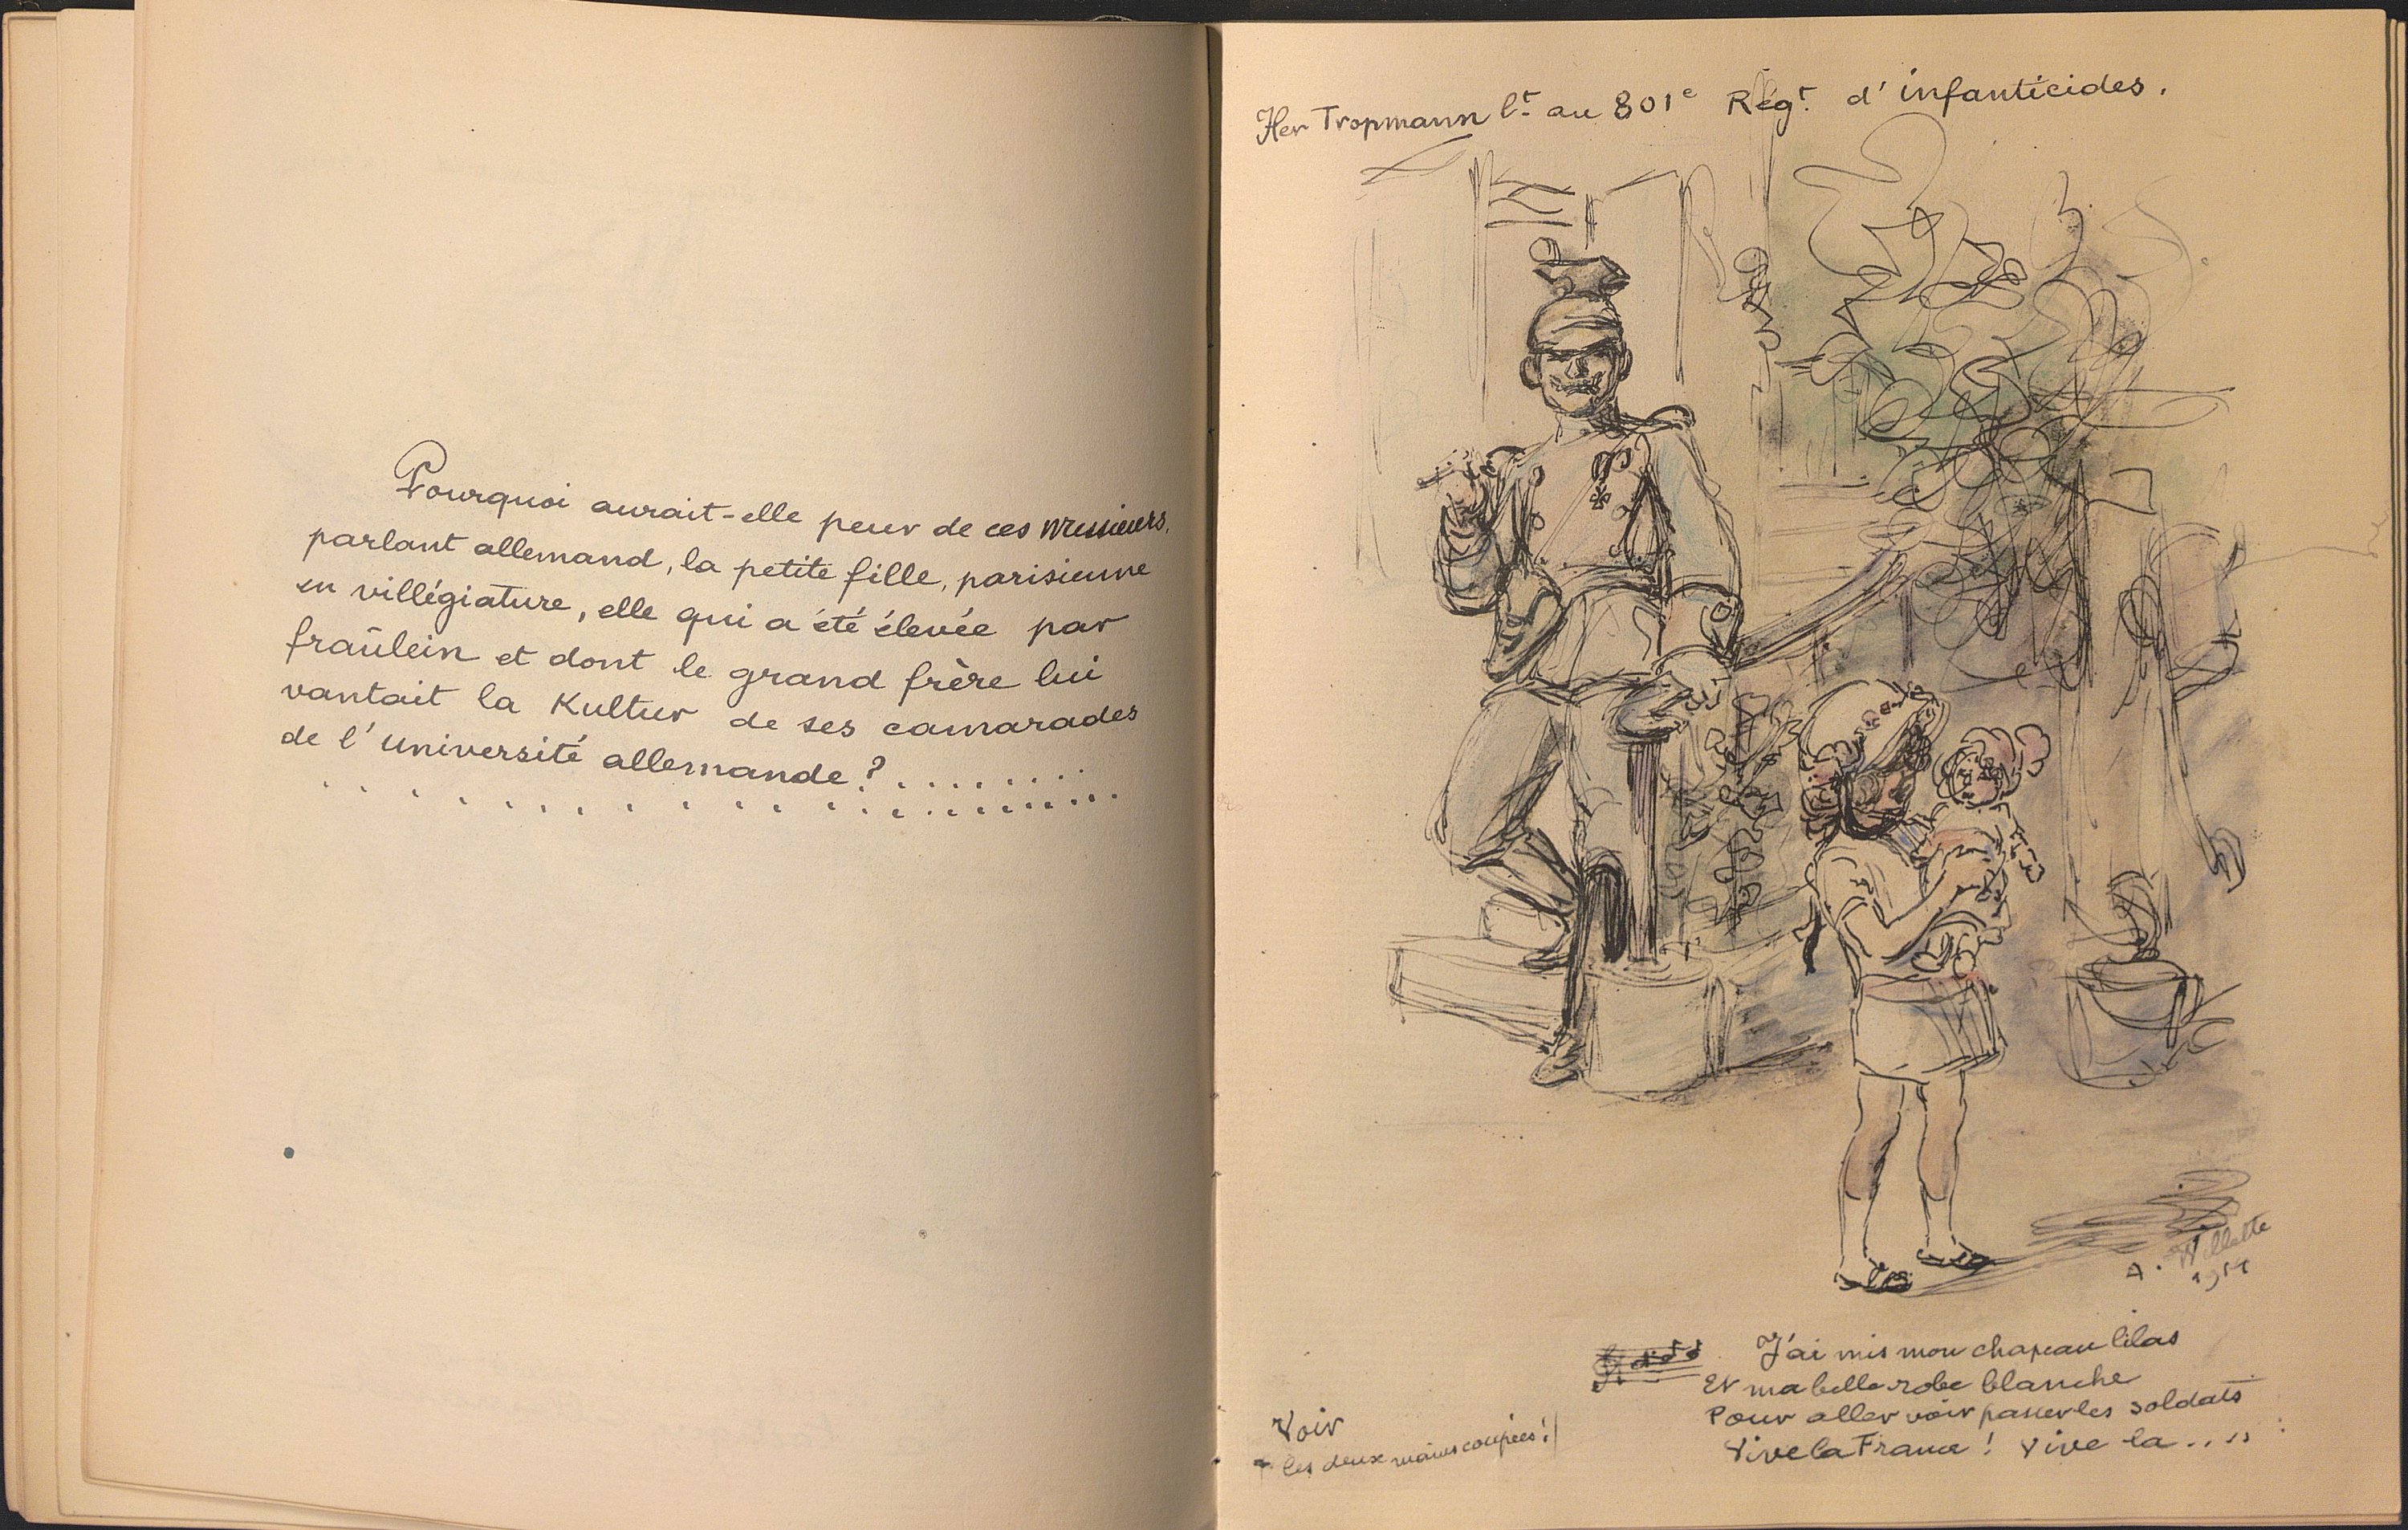 Pourquoi aurait-elle peur de ces messieurs,
parlant allemand, la petite fille, parisienne
en villégiature, elle qui a été élevée par
fraülein et dont le grand frère lui
vantait la Kultur de ses camarades
de l'Université allemande ? . . . . . . . .
. . . . . . . . . . . . . . . . . . . .
Her Tropmann lt au 801e Régt. d'infanticides.
A. Willette
1914
J'ai mis mon chapeau lilas
Et ma belle robe blanche
Pour aller voir passer les soldats
Vive la France ! Vive la . . . .
Voir
les deux mains coupées !